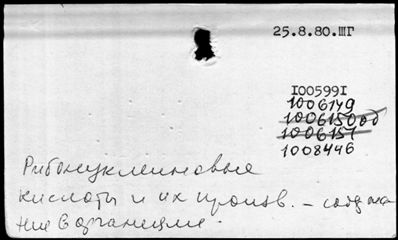 25.8.80.ШГ
I00599I
1006149
1006150об
1006151
1008446
Рибонуклеиновые
кислоты и их произв. – содержа
ние в организме.